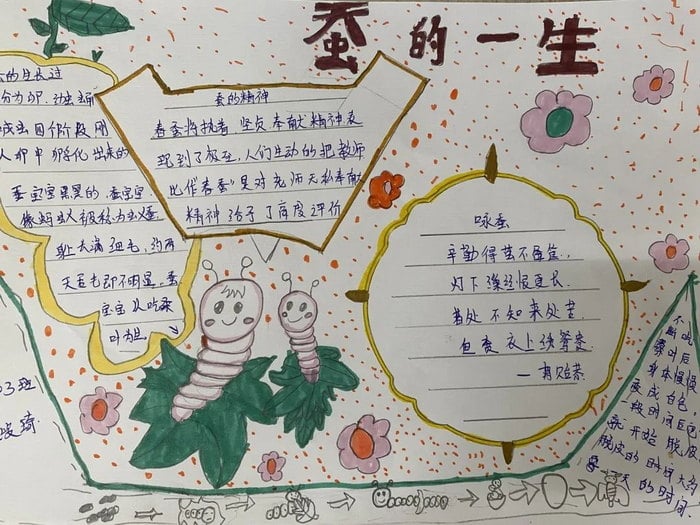 蚕的一生
的生长过
分为卵、
成虫四个阶段 刚
人卵中孵化出来的
蚕宝宝黑黑的，蚕宝宝
像蚂蚁人被称为蚁蚕.
长满细毛，约两
天后毛即不明显，蚕
宝宝从吃桑
叶
蚕的精神
春蚕将执着 坚贞奉献精神表
现到了极至，人们生动的把教师
比作春蚕"是对老师无私奉献
精神给予了高度评价
咏蚕
辛勤得茧不盈筐，
灯下缫丝恨更长.
着处不知来处苦.
但贪衣上绣鸳鸯.
一蒋贻恭
不断吃
桑叶后
身体慢慢
变成白色
一段时间后它
开始脱皮
脱皮的时间大约
一天的时间.
03班